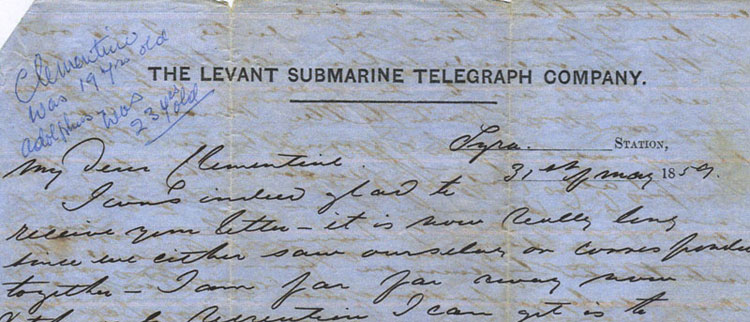 Clementine
was 19 yrs old
adolphus was
23 yrs old
THE LEVANT SUBMARINE TELEGRAPH COMPANY.
Syra. STATION,
31st of may 1859.
My Dear Clementine.
I was indeed glad to
receive your letter – it is now really long
since we either saw ourselves or corresponded
together – I am far far away now
Recreation I can get is to